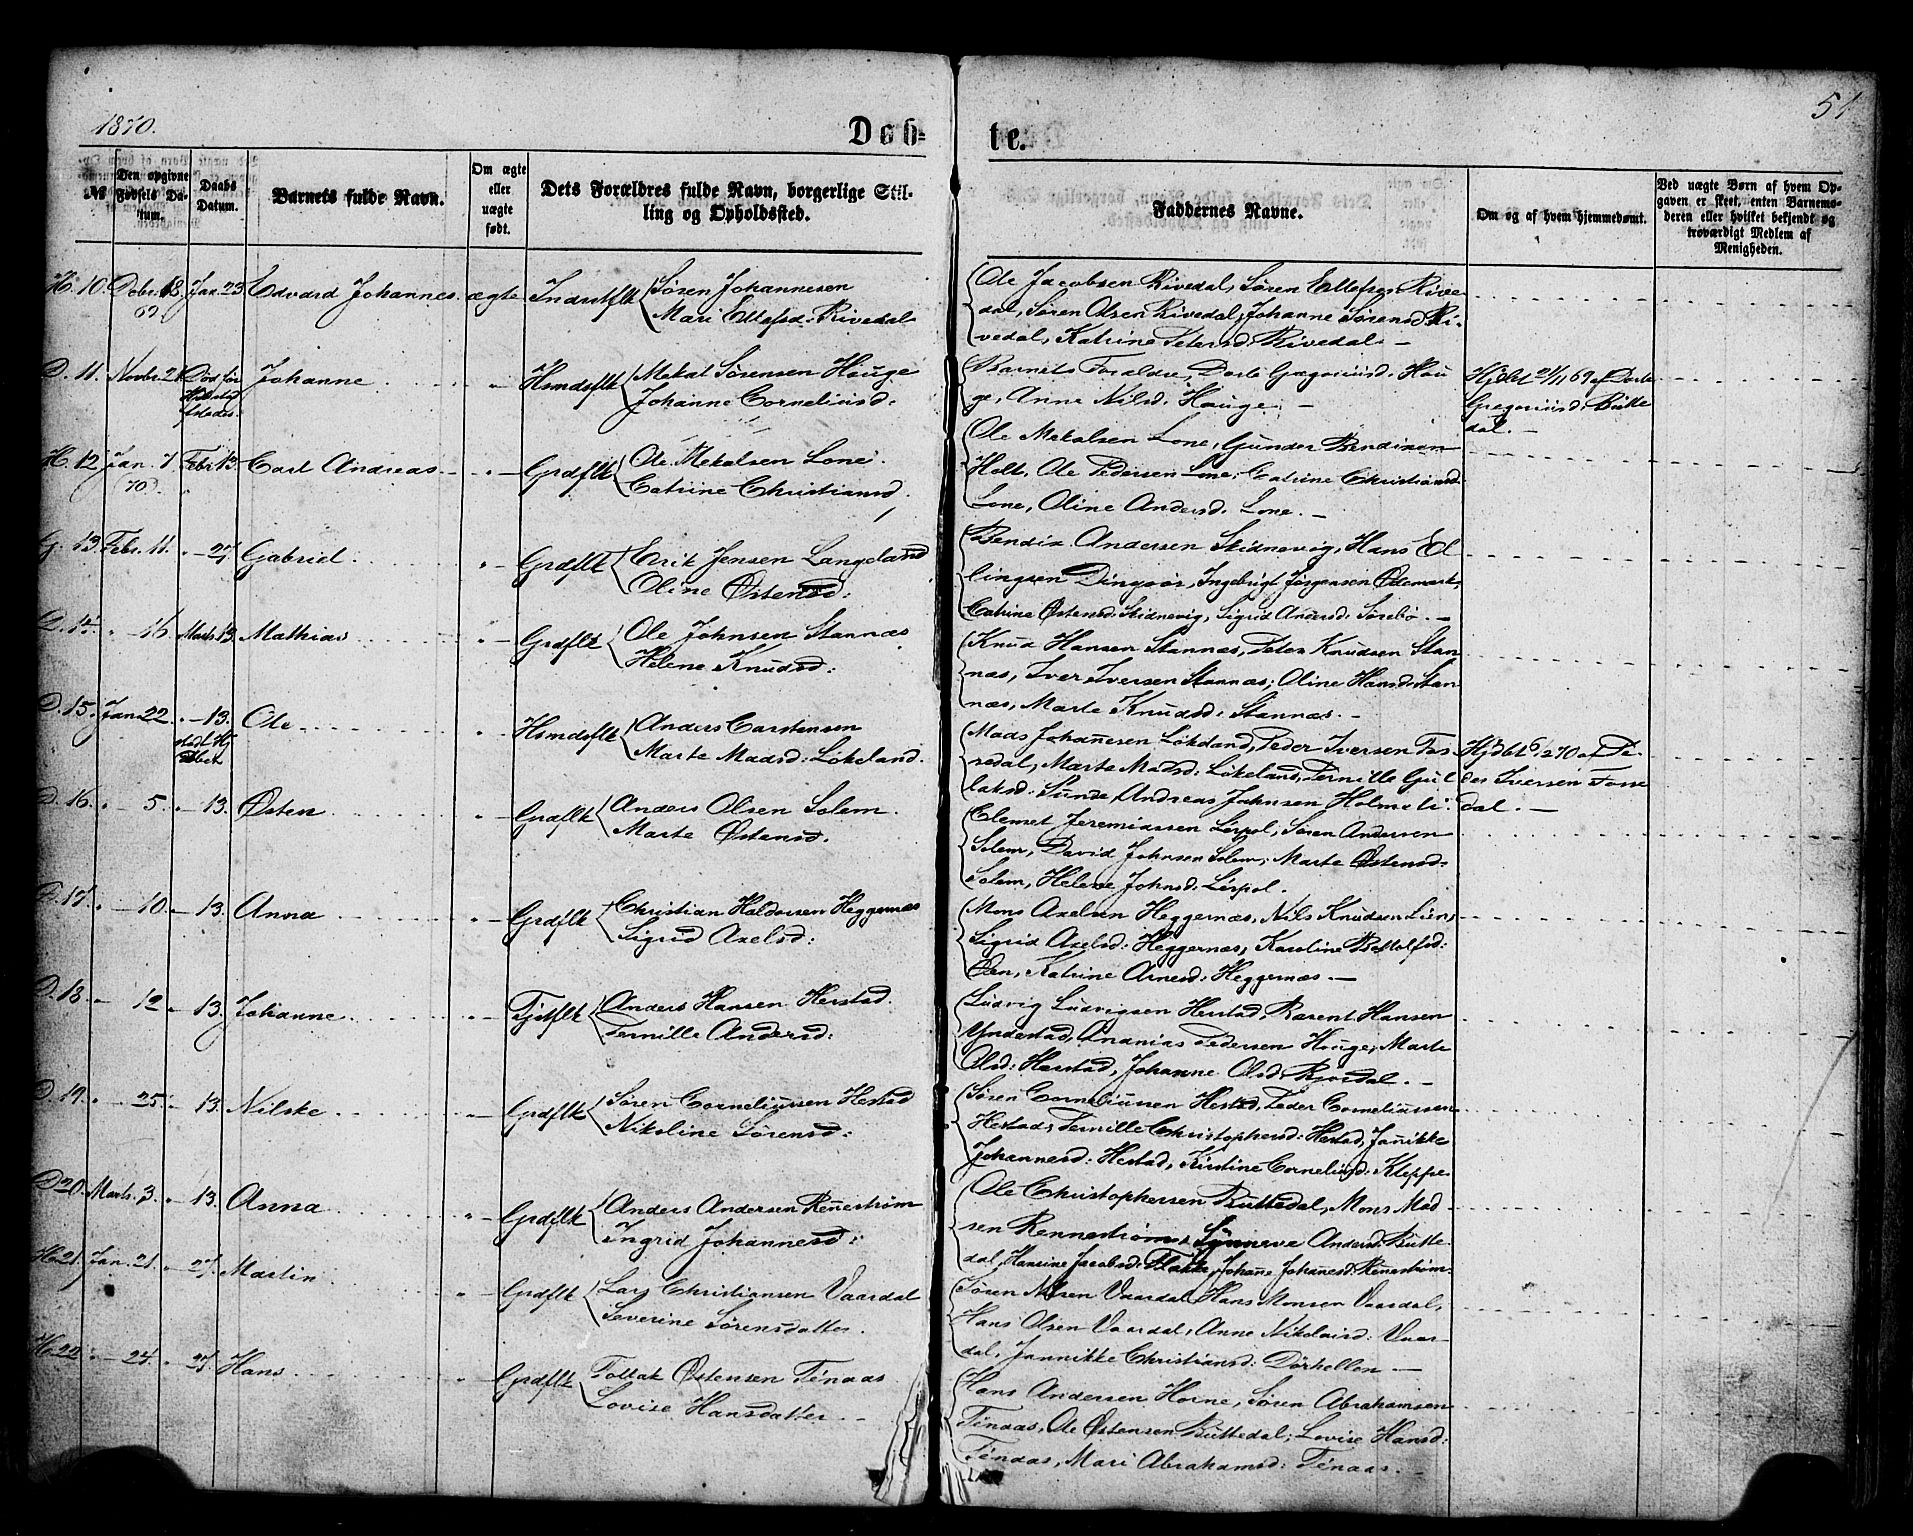 1870.
Døb-
te.
51
№
Den opgivne Fødsels Datum.
Daabs Datum.
Barnets fulde Navn.
Om ægte eller uægte født.
Dets Forældres fulde Navn, borgerlige Stilling og Opholdssted.
Faddernes Navne.
Om og af hvem hjemmedøbt.
Ved uægte Børn af hvem Opgaven er skeet, enten Barnemoderen eller hvilket bekjendt og troværdigt Medlem af Menigheden.
H. 10. Debr. 18 69 Jan. 23 Edvard Johannes. ægte Indrstflk Søren Johannesen
Mari Ellefsd: Rivedal
Ole Jacobsen Rivedal, Søren Ellefsen Rive-
dal, Søren Olsen Rivedal, Johanne Sørensd Ri-
vedal, Katrine Petersd. Rivedal. —
D. 11. Novbr. 21 Død før Johanne Hsmdsflk Mekal Sørensen Hauge
Johanne Corneliusd:
Barnets Forældre, Dorte Gregoriusd: Hau-
ge, Anne Nilsd. Hauge. —
Hjdbt 21/11 69 af Dorte
Gregoriusd: Butte
dal. —
H. 12 Jan. 7 (70) Febr. 13. Carl Andreas Grdflk Ole Mekalsen Lone.
Catrine Christiansd.
Ole Mekalsen Lone, Gunder Bendixen
Holt, Ole Pedersen Lone, Catrine Christiansd.
Lone, Oline Andersd. Lone. —
G. 13. Febr. 11. " — 27. Gabriel Grdflk Erik Jensen Langeland
Oline Østensd:
Bendix Andersen Skidnevig, Hans El-
lingsen Dingsør, Ingebrigt Jørgensen Ødemark,
Catrine Østensd: Skidnevig, Sigrid Andersd: Sørebø. —
D. 14. " — 16. Marts. 13. Mathias Grdflk Ole Johnsen Stannæs
Helene Knudsd:
Knud Hansen Stannæs, Peter Knudsen Stan
næs, Iver Iversen Stannæs, Oline Hansd: Stan
næs, Marte Knudsd: Stannæs. —
D. 15. Jan. 22. " — 13. Ole Hsmdsflk Anders Carstensen
Marte Madsd: Løkeland.
Mads Johannesen Løkeland, Peder Iversen Fos-
sedal, Marte Madsd: Løkeland, Pernille Gul
laksd: Sunde, Andreas Johnsen Holmeli
Hjdbt 6/2 70 af Pe-
der Iversen Fosse
dal. —
D. 16. " — 5. " — 13. Østen Grdflk Anders Olsen Solem.
Marte Østensd.
Clemet Jeremiassen Lérpol, Søren Andersen
Solem, David Johnsen Solem, Marte Østensd:
Solem, Helene Johnsd: Lérpol.
D. 17. " — 10. — 13. Anna Grdflk Christian Haldorsen Heggernæs
Sigrid Axelsd:
Mons Axelsen Heggernæs, Nils Knudsen Lien,
Sigrid Axelsd: Heggernæs, Karoline Bottolfsd:
Øen, Katrine Arnesd: Heggernæs. —
D. 18. — 12 " 13. Johanne Tjstflk Anders Hansen Herstad.
Pernille Andersd:
Ludvig Ludvigsen Herstad, Rasent Hansen
Yndestad, Ananias Pedersen Hauge, Marte
Olsd: Herstad, Johanne Olsd: Bjordal. —
D. 19. " — 25. — 13. Nilske Grdflk Søren Corneliussen Hestad
Nikoline Sørensd:
Søren Corneliussen Hestad, Peder Corneliussen
Hestad, Pernille Christophersd: Hestad, Jannikke
Johannesd: Hestad, Kirstine Corneliusd: Kleppe.
D. 20. Marts. 3. " — 13. Anna Grdflk Anders Andersen Rennestrøm
Ingrid Johannesd:
Ole Christophersen Buttedal, Mons Mad
sen Rennestrøm, Synneve Andersd: Butte
dal, Hansine Jacobsd: Flekke, Johanne Johanesd: Rennestrøm.
H. 21. Jan. 21. " — 27. Martin Grdflk Lars Christiansen Vaardal
Severine Sørensdatter.
Søren Nilsen Vaardal, Hans Monsen Vaardal,
Hans Olsen Vaardal, Anne Nikolaisd: Vaar-
dal, Jannikke Christiansd: Dørhellen —
H. 22 " — 24. " 27. Hans Grdflk Follak Østensen Ténaas
Lovise Hansdatter. —
Hans Andersen Horne, Søren Abrahamsen
Ténaas, Ole Østensen Buttedal, Lovise Hansd:
Ténaas, Mari Abrahamsd: Ténaas. —